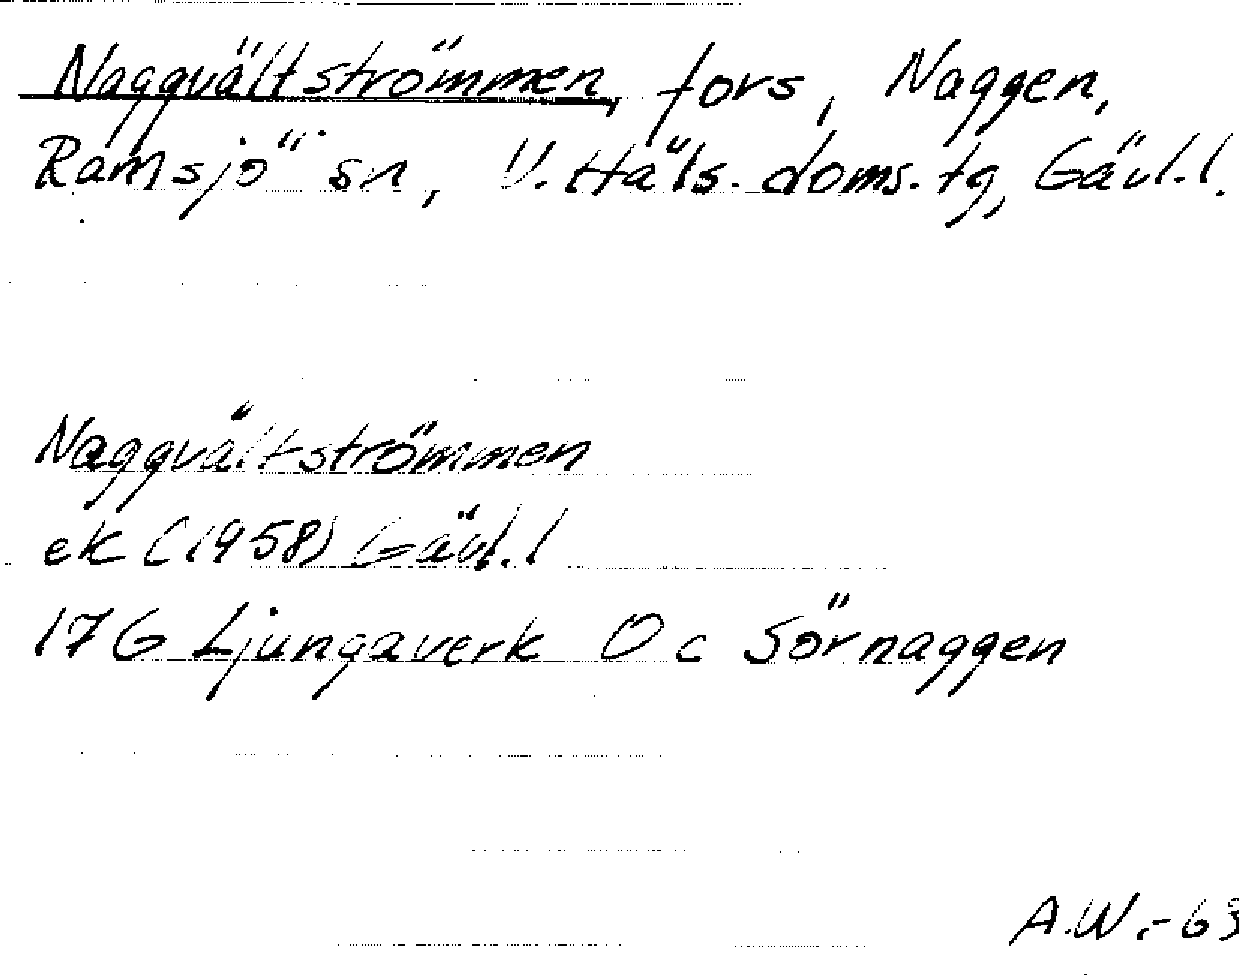 Naggvältströmmen, fors, Naggen,
Ramsjö sn, V. Häls. doms. tg, Gävl.l.
Naggvältströmmen
ek (1958) Gävl.l
17G Ljungaverk O c Sörnaggen
A.W.-63